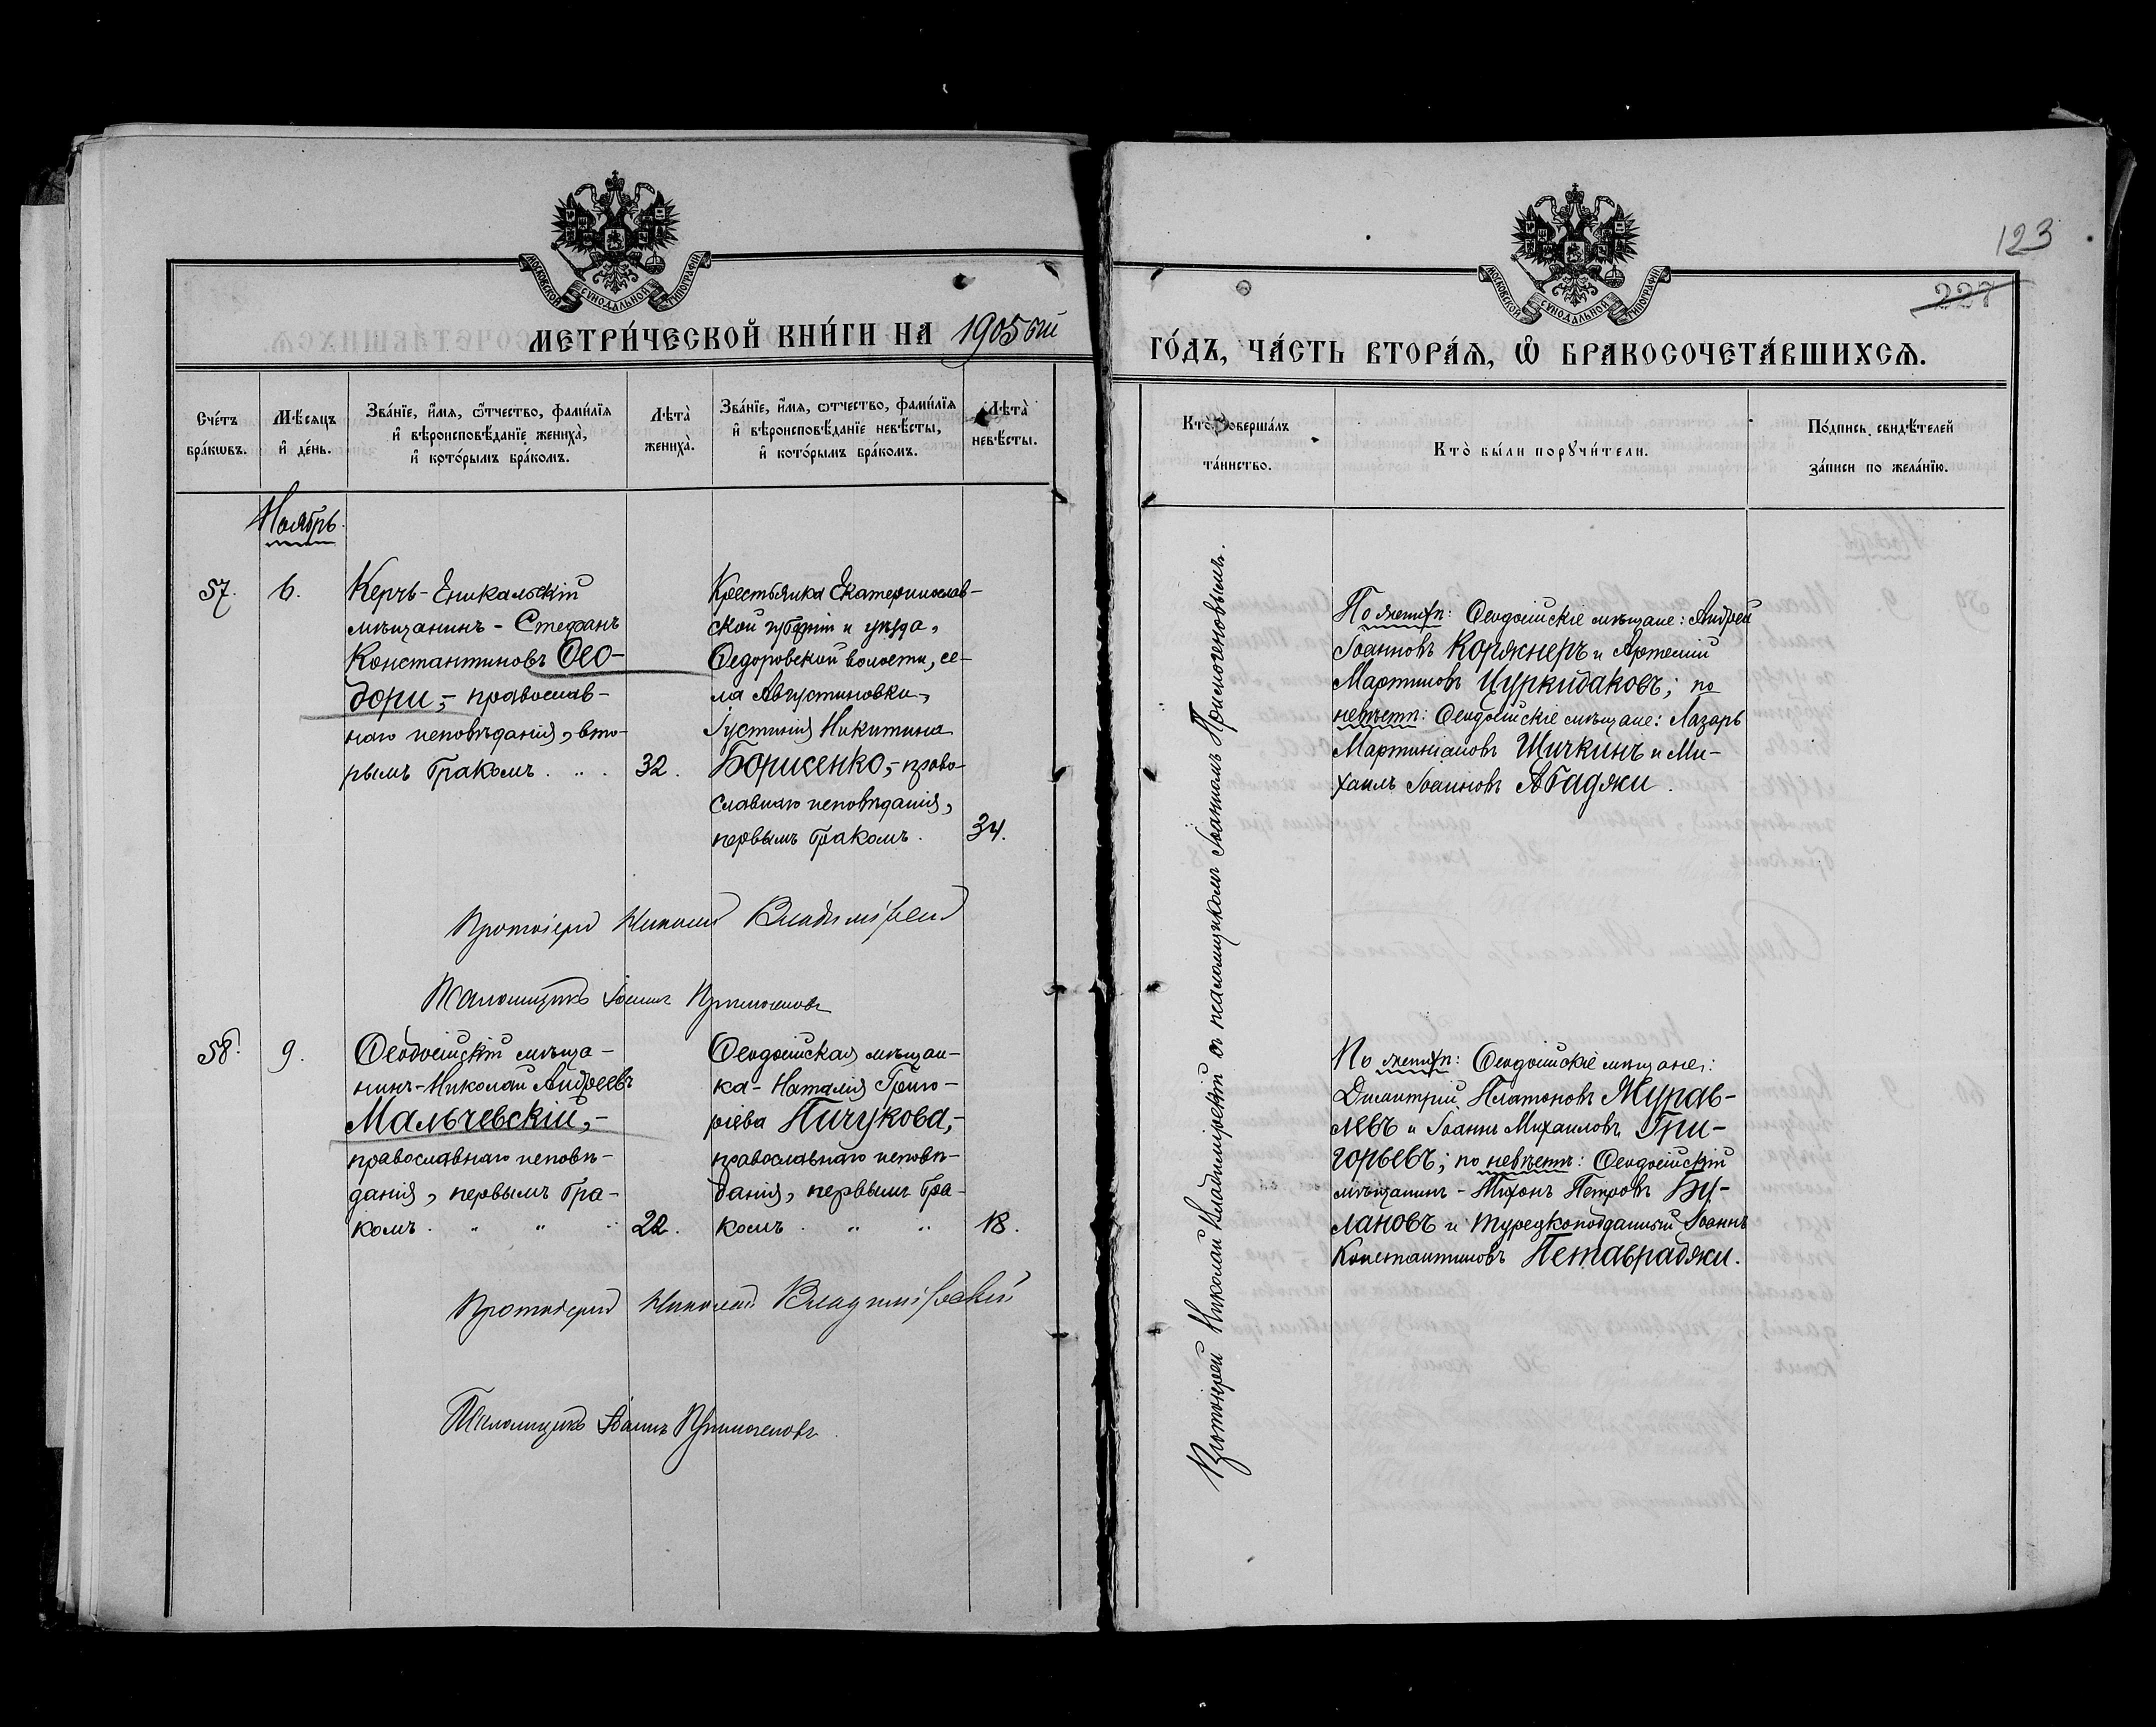 МОСКОВСКОЙ СѴНОДАЛЬНОЙ ТИПОГРАФІИ
МЕТРИ́ЧЕСКОЙ КНИ́ГИ НА 1905 ый
Сче́тъ бра́кѡвъ.
Мѣ́сяцъ и҆ де́нь.
Зва́нїе, и҆́мѧ, ѻ҆́тчество, фами́лїѧ
и҆ вѣроисповѣ́данїе жениха̀,
и҆ кото́рымъ бра́комъ.
Лѣта̀ жениха̀.
Зва́нїе, и҆́мѧ, ѻ҆тчество, фами́лїѧ
и҆ вѣроисповѣ́данїе невѣ́сты,
и҆ кото́рымъ бра́комъ.
Лѣта̀ невѣ́сты.
Ноябрь.
57.
6.
Керчь-Еникальскій
мѣщанинъ - Стефанъ
Константиновъ Ѳео-
дори, - православ-
наго исповѣданія, вто-
рымъ бракомъ. „ .
32.
Крестьянка Екатеринослав-
ской губерніи и уѣзда,
Ѳедоровской волости, се-
ла Августиновки,
Іустинія Никитина
Борисенко, - право-
славнаго исповѣданія,
первымъ бракомъ.
34.
Протоіерей Николай Владимірскій
Псаломщикъ Іоаннъ
58.
9.
Ѳеодосійскій мѣща-
нинъ - Николай Андреевъ
Мальчевскій, -
православнаго исповѣ-
данія, первымъ бра-
комъ. „ „ „
22.
Ѳеодосійская мѣщан-
ка - Наталія Григо-
ріева Пичукова, -
православнаго исповѣ-
данія, первымъ бра-
комъ. „ „
18.
Протоіерей Николай Владимірскій
Псаломщикъ Іоаннъ
123
227
МОСКОВСКОЙ СѴНОДАЛЬНОЙ ТИПОГРАФІИ
ГО́ДЪ, ЧА́СТЬ ВТОРА́Ѧ, Ѽ БРАКОСОЧЕТА́ВШИХСѦ.
Кто̀ соверша́лъ
та́инство.
Кто̀ бы́ли порꙋчи́тели.
По́дпись свидѣ́телей
за́писи по жела́нїю.
Протоіерей Николай Владимірскій съ псаломщикомъ Іоанномъ
По женихѣ: Ѳеодосійскіе мѣщане: Андрей
Іоанновъ Коржнеръ и Артемій
Мартиновъ Цуркидаковъ; по
невѣстѣ: Ѳеодосійскіе мѣщане: Лазарь
Мартиніановъ Шичкинъ и Ми-
хаилъ Іоанновъ Абаджи.
По женихѣ: Ѳеодосійскіе мѣщане:
Димитрій Платоновъ Мурав-
левъ и Іоаннъ Михаиловъ Гри-
горьевъ; по невѣстѣ: Ѳеодосійскій
мѣщанинъ - Тихонъ Петровъ Бу-
лановъ и турецкоподданный Іоаннъ
Константиновъ Петавраджи.